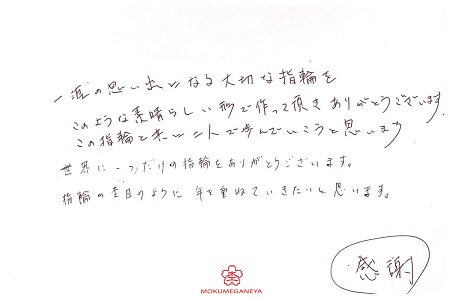 一生の思い出になる大切な指輪を
このような素晴らしい形で作って頂きありがとうございます
この指輪と共に二人で歩んでいこうと思います
世界に一つだけの指輪をありがとうございます。
指輪の杢目のように年を重ねていきたいと思います。
感謝
MOKUMEGANEYA